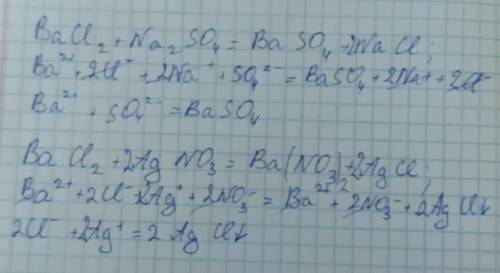 BaCl₂ + Na₂SO₄ = BaSO₄ + 2NaCl;
Ba²⁺ + 2Cl⁻ + 2Na⁺ + SO₄²⁻ = BaSO₄ + 2Na⁺ + 2Cl⁻
Ba²⁺ + SO₄²⁻ = BaSO₄
BaCl₂ + 2AgNO₃ = Ba(NO₃)₂ + 2AgCl;
Ba²⁺ + 2Cl⁻ + 2Ag⁺ + 2NO₃⁻ = Ba²⁺ + 2NO₃⁻ + 2AgCl↓
2Cl⁻ + 2Ag⁺ = 2AgCl↓